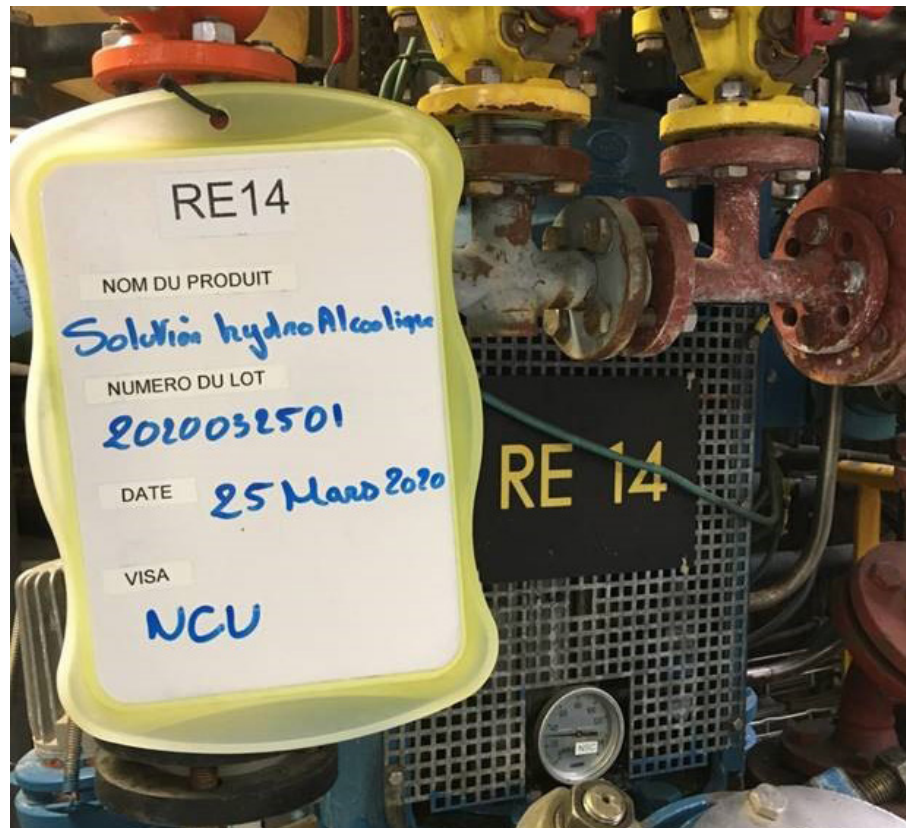 RE14
NOM DU PRODUIT
Solution hydroAlcoolique
NUMERO DU LOT
2020032501
DATE 25 Mars 2020
VISA
NCU
RE 14